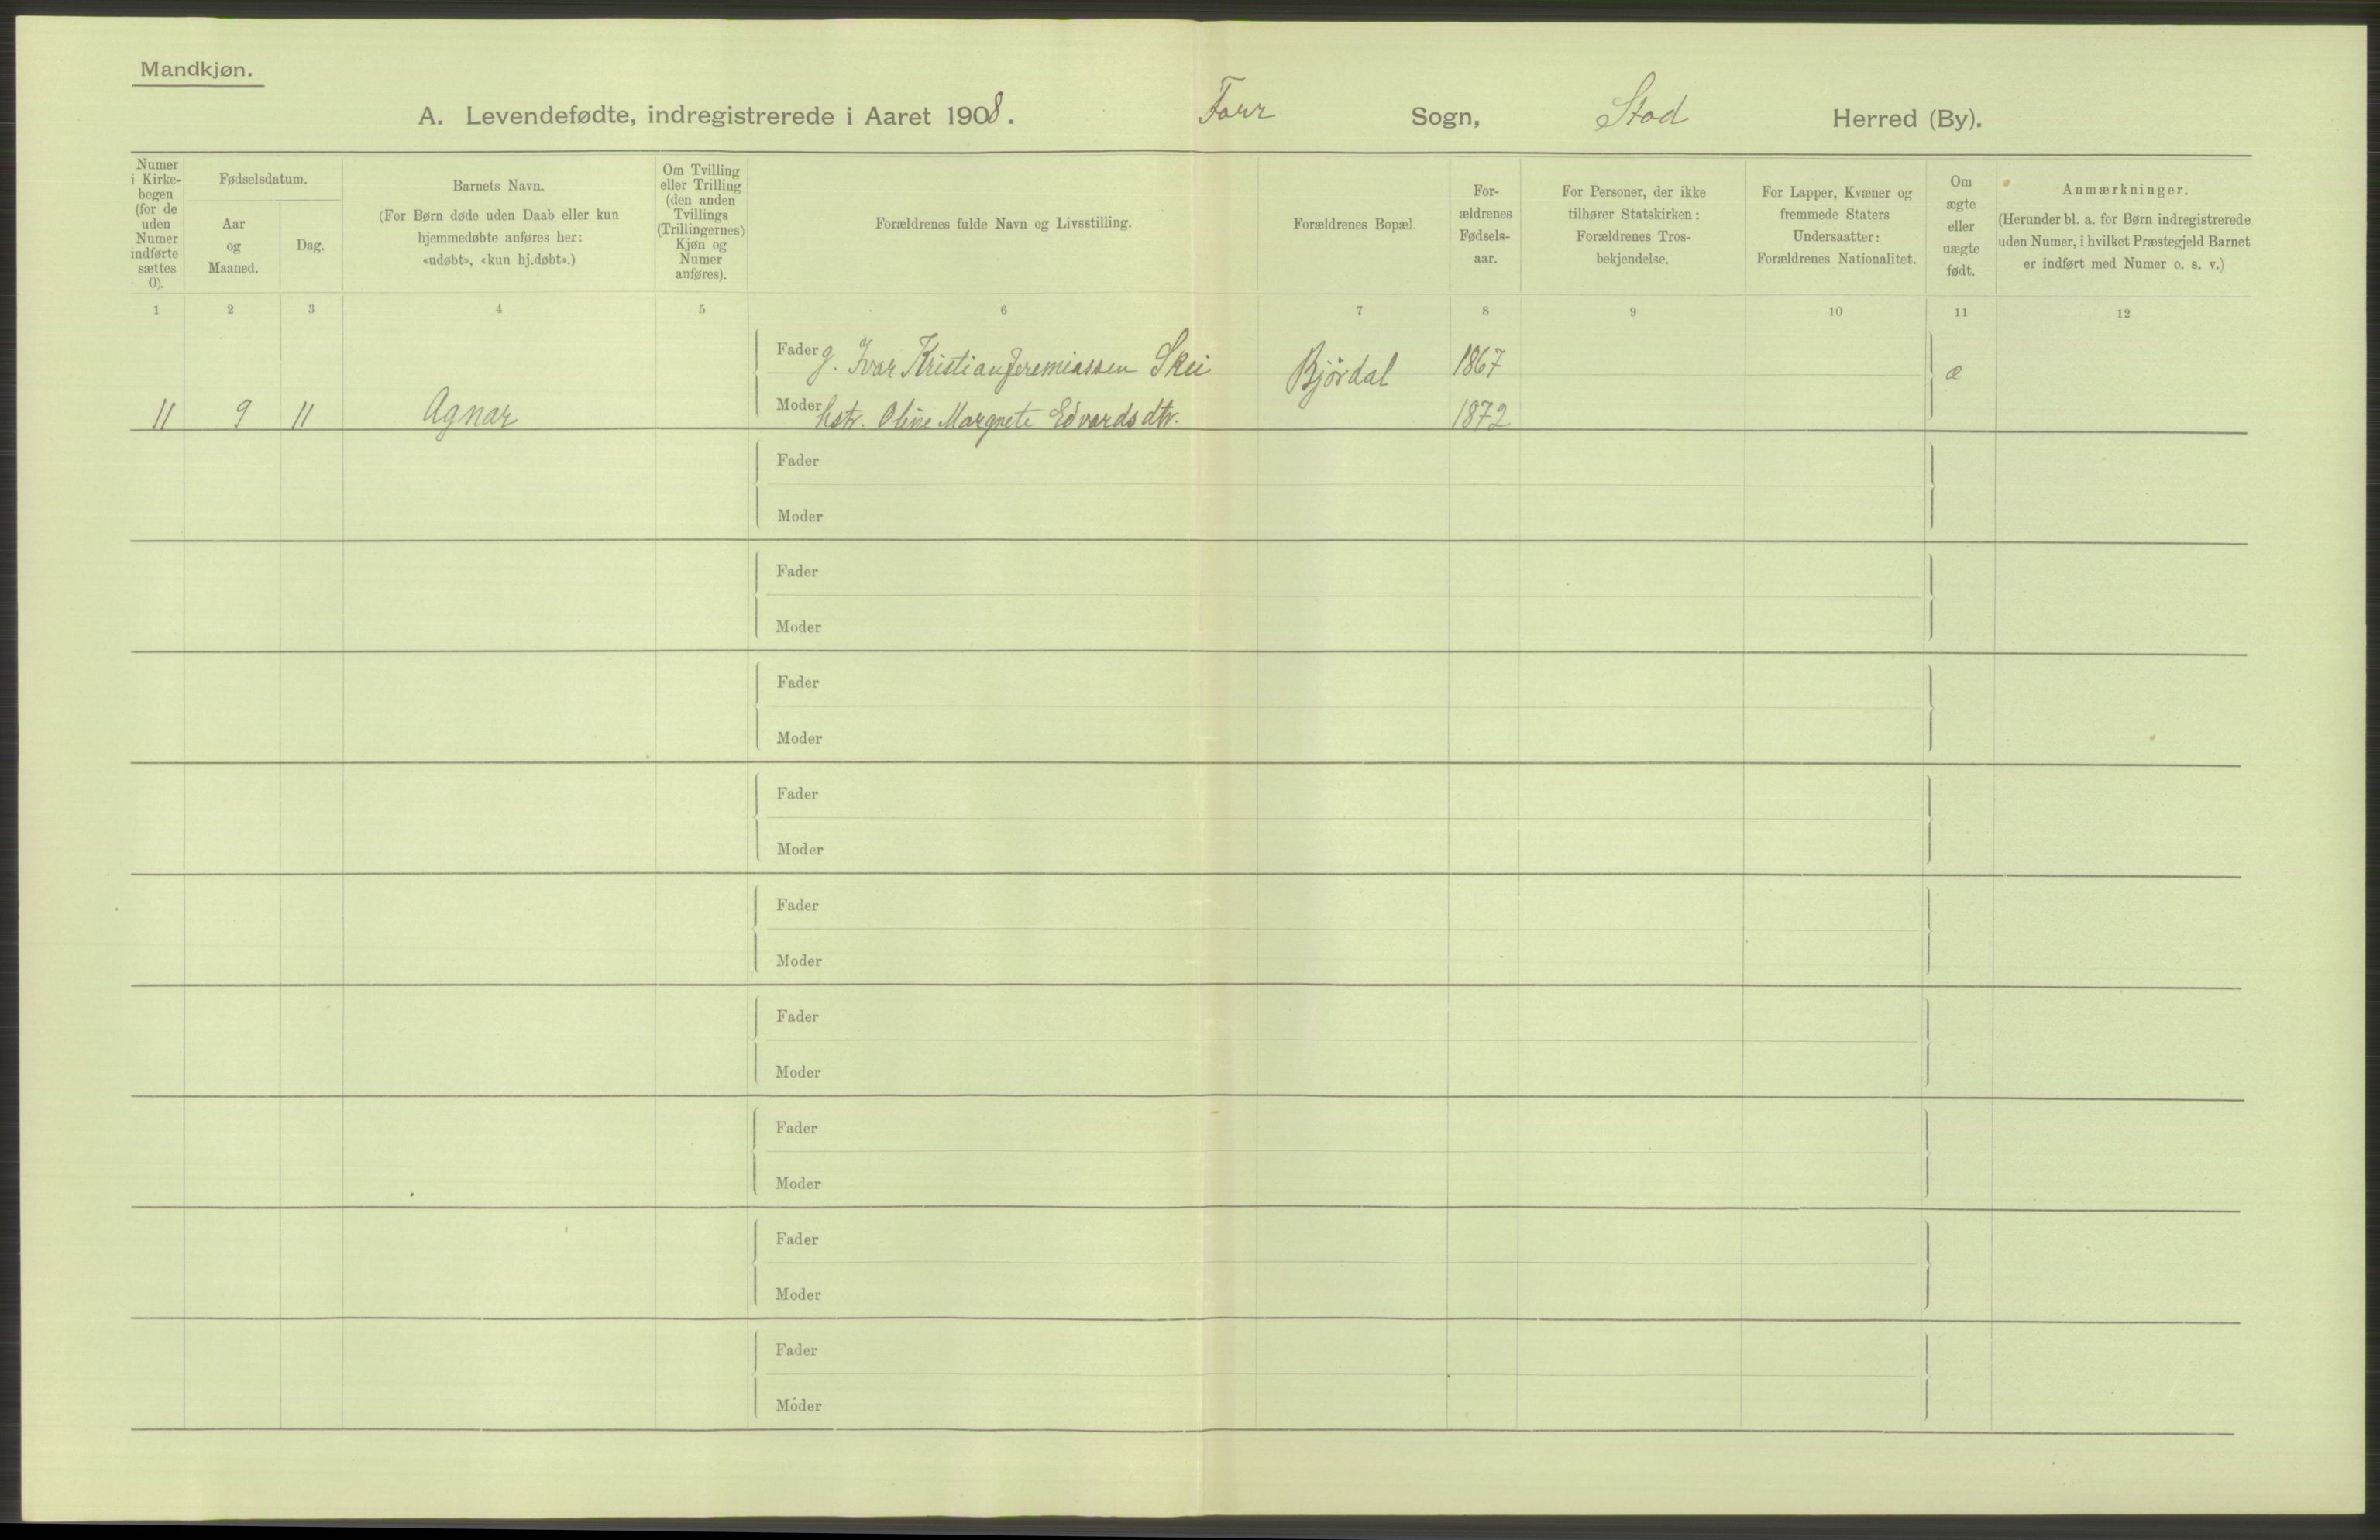 Mandkjøn.
A. Levendefødte, indregistrerede i Aaret 1908. For Sogn, Stod Herred (By).
Numer i Kirke-bogen (for de uden Numer indførte sættes 0).
Fødselsdatum.
Aar og Maaned.
Dag.
Barnets Navn.
(For Børn døde uden Daab eller kun
hjemmedøbte anføres her:
«udøbt», «kun hj.døbt».)
Om Tvilling
eller Trilling
(den anden
Tvillings
(Trillingernes)
Kjøn og
Numer
anføres).
Forældrenes fulde Navn og Livsstilling.
Forældrenes Bopæl.
For-
ældrenes
Fødsels-
aar.
For Personer, der ikke
tilhører Statskirken:
Forældrenes Tros-
bekjendelse.
For Lapper, Kvæner og
fremmede Staters
Undersaatter:
Forældrenes Nationalitet.
Om
ægte
eller
uægte
født.
Anmærkninger.
(Herunder bl. a. for Børn indregistrerede
uden Numer, i hvilket Præstegjeld Barnet
er indført med Numer o. s. v.)
1 2 3 4 5 6 7 8 9 10 11 12
Fader g. Ivar Kristian Jeremiassen Skei Bjørdal 1867 æ
11 9 11 Agnar Moder hstr. Oline Margrete Edvardsdtr. 1872
Fader
Moder
Fader
Moder
Fader
Moder
Fader
Moder
Fader
Moder
Fader
Moder
Fader
Moder
Fader
Moder
Fader
Moder